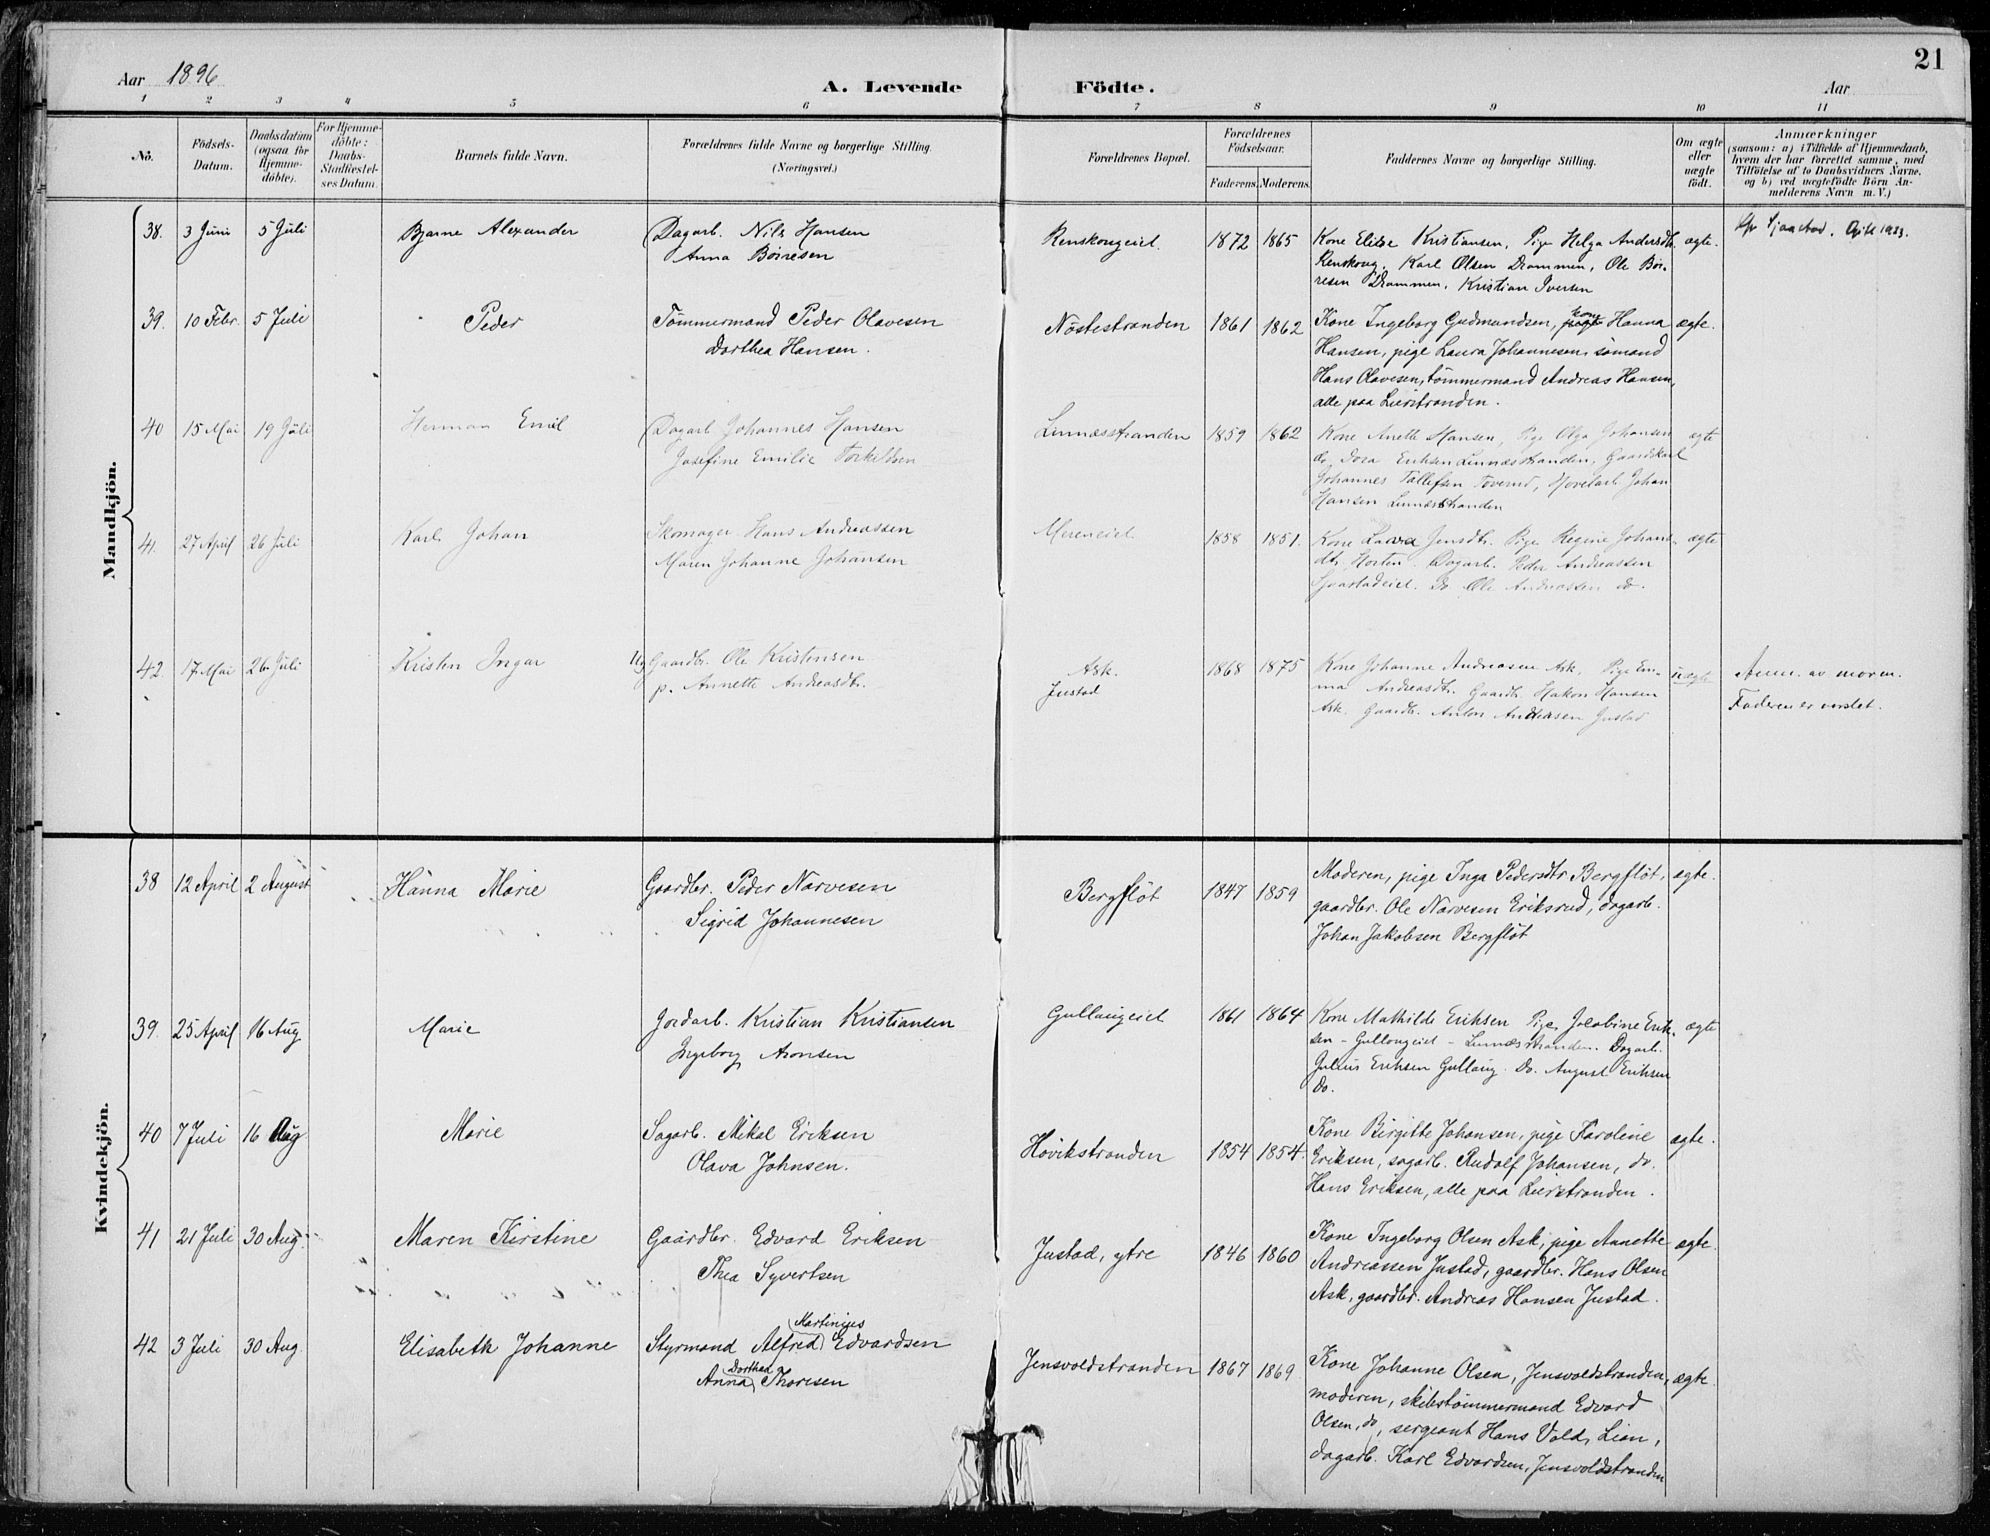 21
Aar 1896
A. Levende Födte.
Aar
1 2 3 4 5 6 7 8 9 10 11
No.
Födsels-
Datum.
Daabsdatum
(ogsaa for
Hjemme-
döbte).
For Hjemme-
döbte:
Daabs-
Stadfæstel-
ses Datum.
Barnets fulde Navn.
Forældrenes fulde Navne og borgerlige Stilling.
(Næringsvei.)
Forældrenes Bopæl.
Forældrenes
Födselsaar.
Faderens. Moderens.
Faddernes Navne og borgerlige Stilling.
Om ægte
eller
uægte
födt.
Anmærkninger
(saasom: a) i Tilfælde af Hjemmedaab,
hvem der har forrettet samme, med
Tilföielse af to Daabsvidners Navne,
og b) ved uægtefödte Börn An-
melderens Navn m. V.)
Mandkjön.
38. 3 Juni 5 Juli Bjarne Alexander
Dagarb. Nils Hansen
Anna Börresen
Renskougeiet. 1872 1865
Kone Elise Kristiansen, Pige Helga Andersdtr.
Renskoug, Karl Olsen Drammen, Ole Bör-
resen Drammen, Kristian Iversen
ægte.
Gift 1923.
39. 10 Febr. 5 Juli Peder
Tömmermand Peder Olavesen
Dorthea Hansen.
Nöstestranden 1861 1862
Kone Ingeborg Gudmundsen, kone Hanna
Hansen, pige Laura Johannesen, sömand
Hans Olavesen, tömmermand Andreas Hansen,
alle paa Lierstranden.
ægte.
40 15 Mai 19 Juli Herman Emil
Dagarb Johannes Hansen
Josefine Emilie Torkeldsen
Linnæsstranden 1859 1862
Kone Anette Hansen, Pige Olga Johansen
do. Dora Eriksen Linnæsstranden, Gaardskarl
Johannes Tallefsen Toverud, Hövelarb Johan
Hansen Linnæsstranden
ægte
41. 27 April 26 Juli Karl Johan
Skomager Hans Andreassen
Maren Johanne Johansen
Mereneiet 1858 1851.
Kone Laura Jensdtr. Pige Regine Johans-
dtr. Horten. Dagarb. Peder Andreassen
Sjaastadeiet. Do Ole Andreassen do.
ægte
42. 17 Mai 26 Juli Kristen Ingar
Ug Gaardbr. Ole Kristensen
p. Annette Andreasdtr.
Ask.
Justad
1868 1875
Kone Johanne Andreasen Ask, Pige Em-
ma Andreasdtr. Gaardbr. Hakon Hansen
Ask. Gaardbr. Anton Andreasen Justad
uægte
Anm. av moren.
Faderen er varslet.
Kvindekjön.
38 12 April 2 August Hanna Marie
Gaardbr. Peder Narvesen
Sigrid Johannesen
Bergflöt 1847 1859
Moderen, pige Inga Pedersdtr Bergflöt,
gaardbr. Ole Narvesen Eriksrud, dagarb.
Johan Jakobsen Bergflöt
ægte.
39. 25 April 16 Aug Marie
Jordarb. Kristian Kristiansen
Ingeborg Aronsen
Gullaugeiet 1861 1864
Kone Mathilde Eriksen Pige Jacobine Erik-
sen - Gullaugeiet - Linnæsstranden. Dagarb.
Julius Eriksen Gullaug. Do. August Eriksen
Do.
ægte
40 7 Juli 16 Aug Marie
Sagarb. Mikal Eriksen
Olava Johnsen.
Hövikstranden 1854 1854.
Kone Birgitte Johansen, pige Karoline
Eriksen, sagarb. Rudolf Johansen, do.
Hans Eriksen, alle paa Lierstranden.
ægte.
41 21 Juli 30 Aug. Maren Kirstine
Gaardbr. Edvard Eriksen
Thea Syvertsen
Justad, ytre 1846 1860
Kone Ingeborg Olsen Ask, pige Annette
Andreassen Justad, gaardbr. Hans Olsen
Ask, gaardbr. Andreas Hansen Justad.
ægte.
42 3 Juli 30 Aug. Elisabeth Johanne
Martinius
Styrmand Alfred Edvardsen
Dorthea
Anna Thoresen
Jensvoldstranden 1867 1869
Kone Johanne Olsen, Jensvoldstranden,
moderen, skibstömmermand Edvard
Olsen, do, sergeant Hans Vold, Lian,
dagarb. Karl Edvardsen, Jensvoldstranden
ægte.